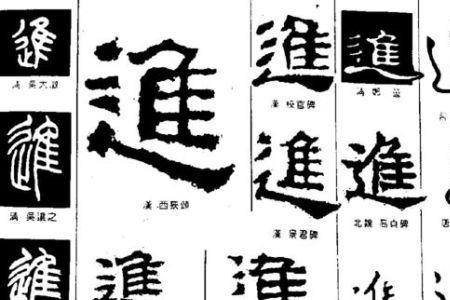 進
清 吳大澂
進
漢 西狹頌
進
漢 校官碑
進
進
清 吳讓之
進
進
北魏 高貞碑
唐
進
進
進